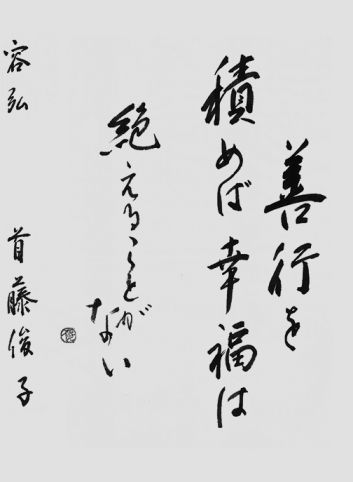 善行を
積めば幸福は
絶えることが
ない
容弘 首藤俊子